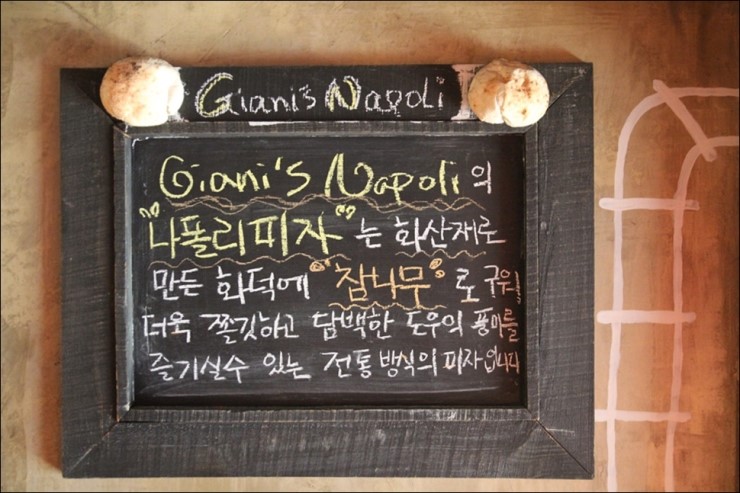 Giani's Napoli
Giani's Napoli의
"나폴리피자"는 화산재로
만든 화덕에 "참나무"로 구워
더욱 쫄깃하고 담백한 도우의 풍미를
즐기실수 있는 전통방식의 피자입니다